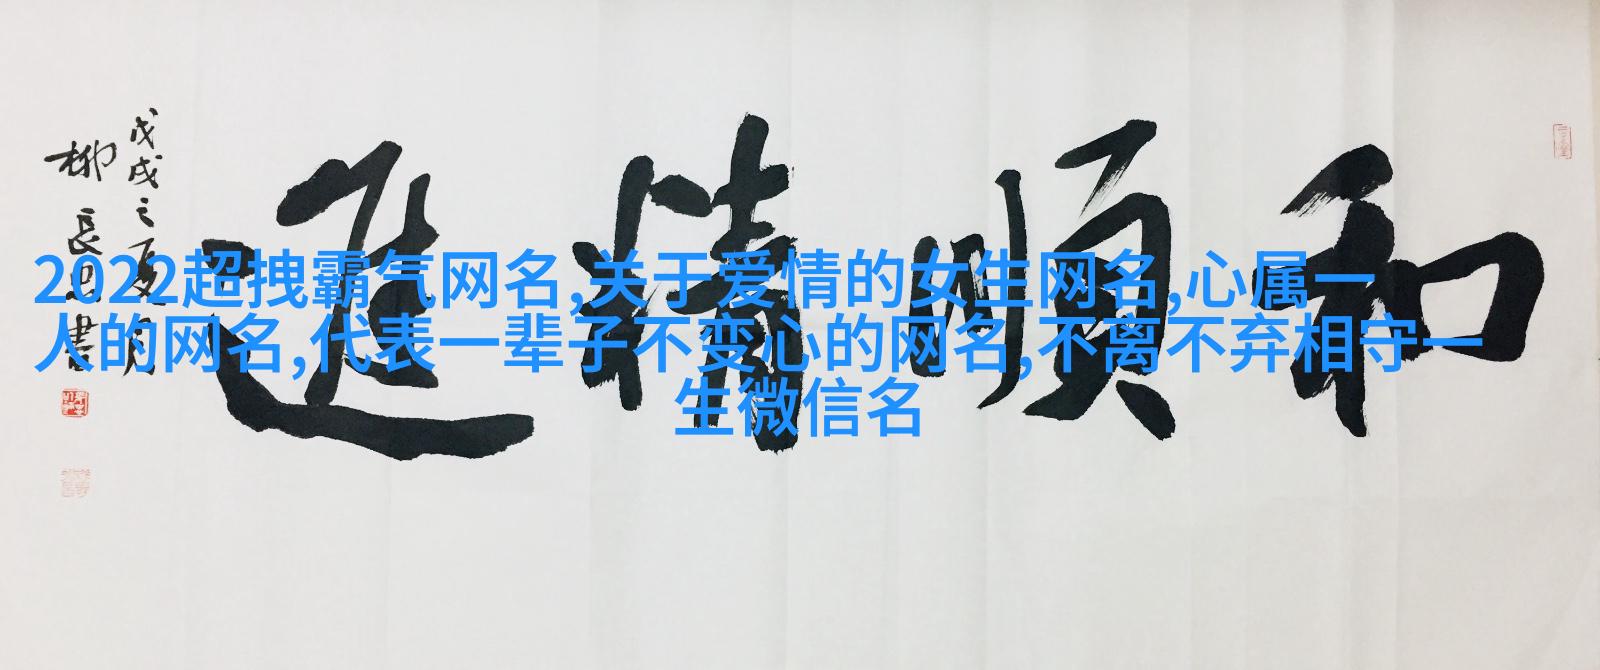 2022超拽霸气网名,关于爱情的女生网名,心属一
人的网名,代表一辈子不变心的网名,不离不弃相守一
生微信名
和順精進
戊戌之夏月
柳長忠書